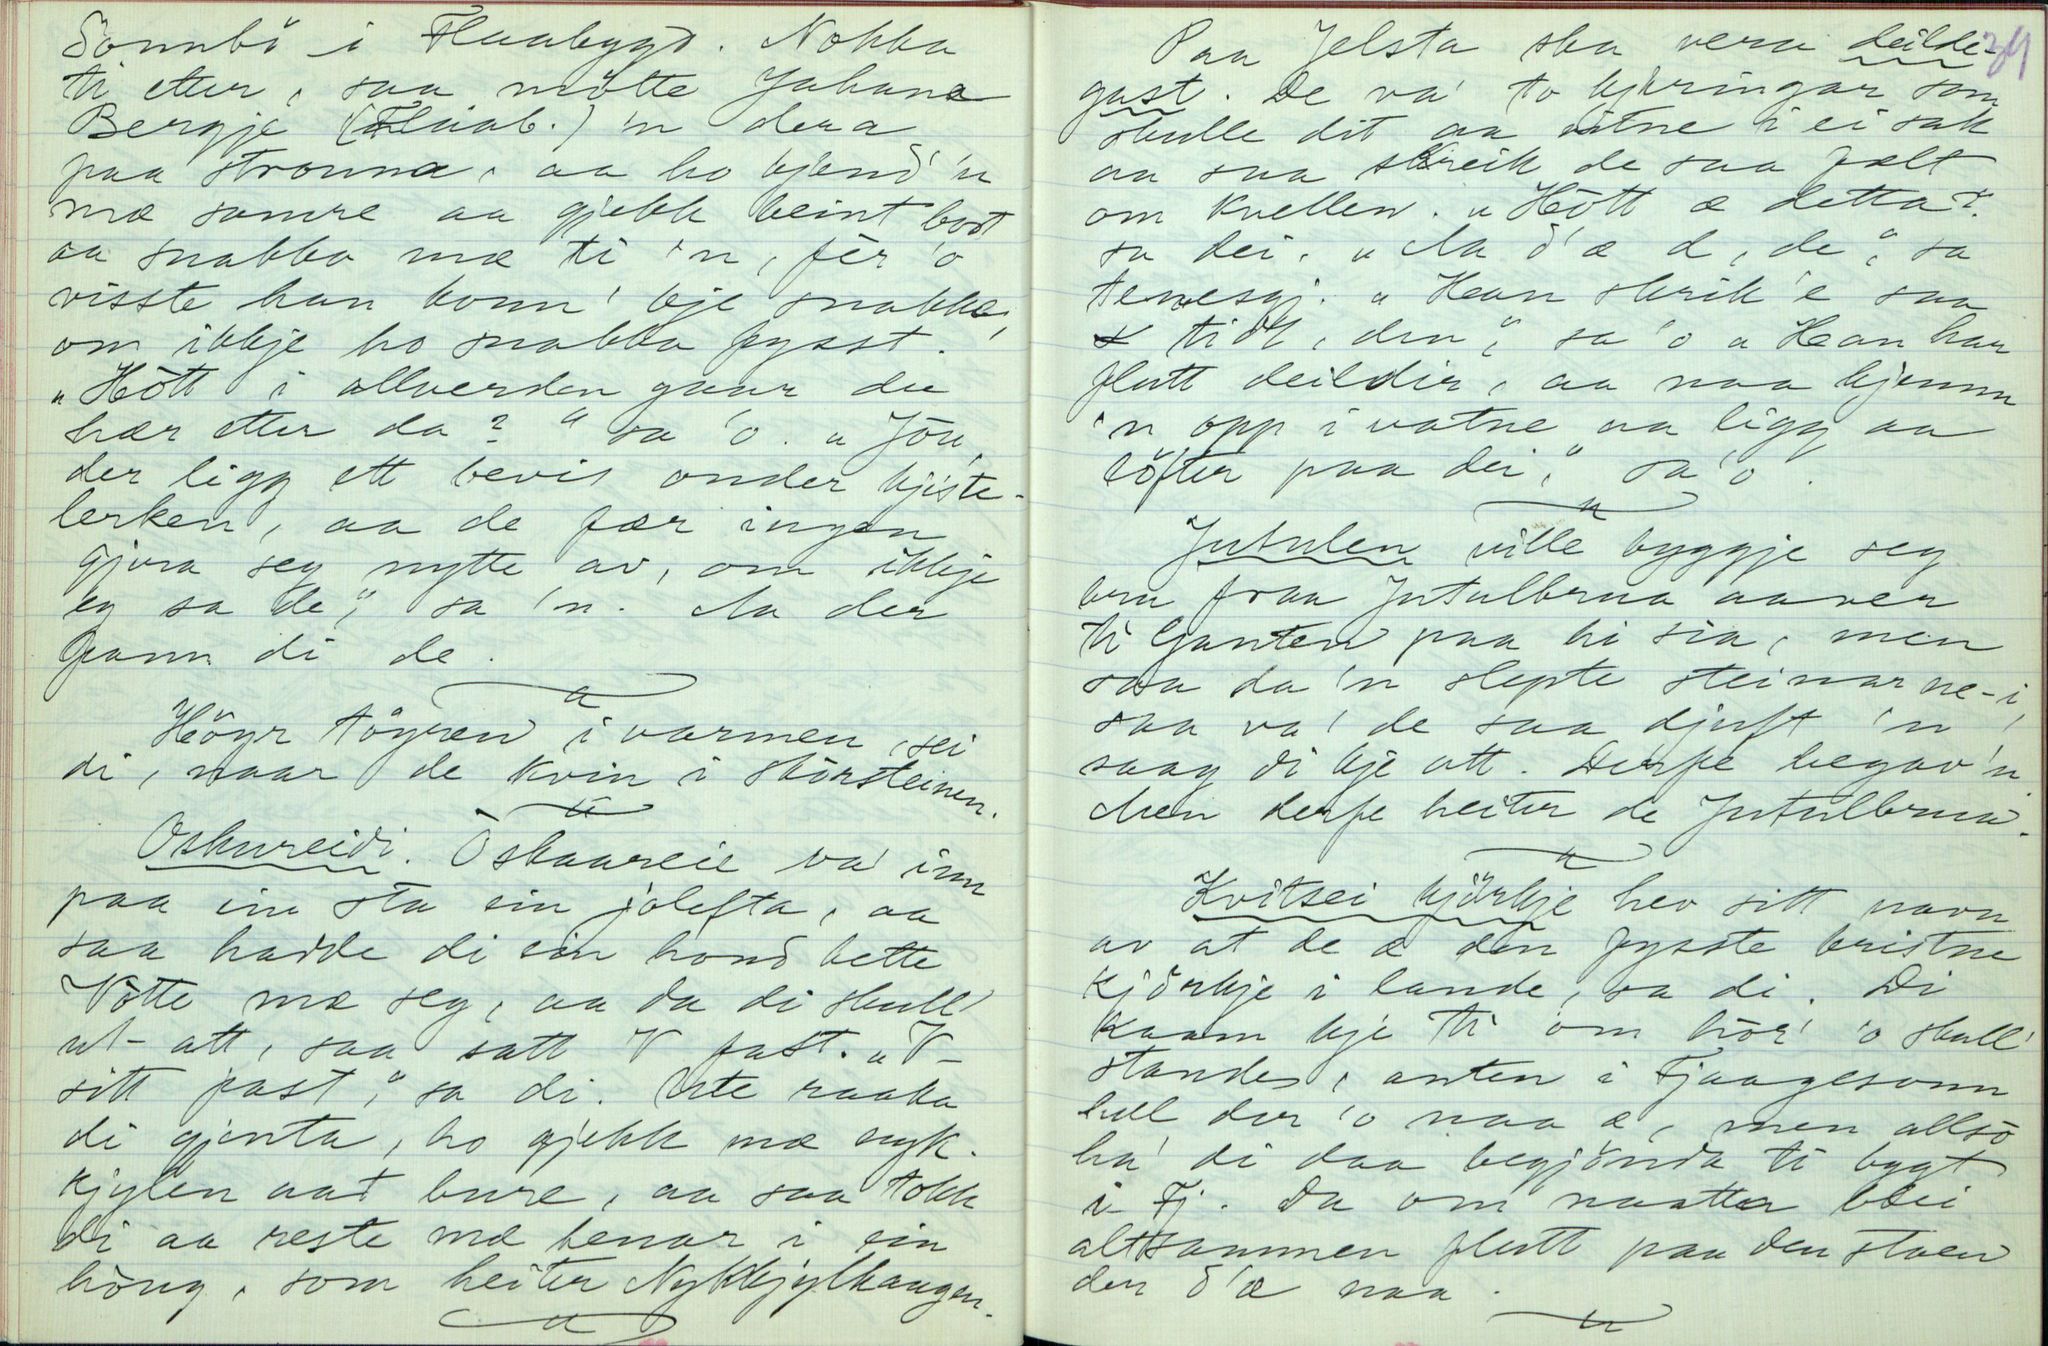 Sonnbö i Flaabygd. Nokka
ti etter, saa mötte Johane
Bergje (Flaab.) 'n dera
paa stronna, aa ho kjend'n
mæ somre aa gjekk beint bort
aa snakka mæ ti 'n, fer 'o
visste han konn' kje snakke,
om ikkje ho snakka fysst.
„Hött i allverden gaar du
hær etter da?" sa 'o. „Jou,
der ligg ett bevis onder kjiste-
lerken, aa de fær ingen
gjera seg nytte av, om ikkje
eg sa de", sa 'n. Aa der
fann di de.
Höyr töyren i varmen, sei
di, naar de kvin i skorsteinen.
Oskureidi. Oskaareie va' inn
paa ein sta ein jolefta, aa
saa hadde di ein hond hette
Votte mæ seg, aa da di skull'
ut-att, saa satt V fast. „V-
sitt fast", sa di. Ute raaka
di gjenta, ho gjekk mæ nyk-
kjylen aat bure, aa saa tokk
di aa reste mæ henar i ein
houg, som heiter Nykkjylhaugen.
Paa Jelsta ska vera deilde- 39
gast. De va' to kjæringar som
skulle dit aa vitne i ei sak
aa saa skreik de saa fælt
om kvellen. „Hött æ detta?"
sa dei. „Aa d'æ d, de", sa
tenesgj. „Han skrik'e saa
tidt, den", sa 'o „Han har
flutt deildir, aa naa kjemm
'n opp i vatne aa ligg aa
löfter paa dei", sa 'o.
Jutulen ville byggje seg
bru fraa Jutulbrua aaver
ti Ganten paa hi sia, men
saa da 'n slepte steinar ne-i,
saa va' de saa djuft 'n
saag di kje att. Derfe begav 'n.
Men derfe heiter de Jutulbrua.
Kvitsei kjörkje hev sitt navn
av at de æ den fysste kristne
kjörkje i lande, sa di. Di
kaam kje ti om hör' 'o skull'
standa, anten i Fjaagesonn
hell der 'o naa æ, men allsö
ha' di daa begjönda ti bygt
i Fj. Da om naatter blei
altsammen flutt paa den staen
der d'æ naa.